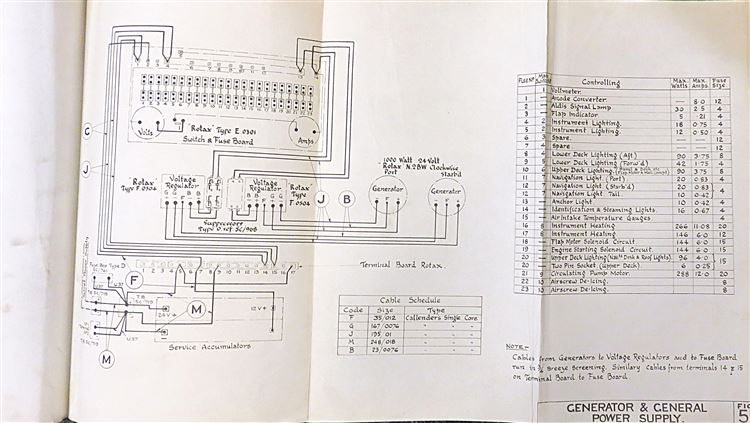 Volts
"Rotax" Type E.0301
Switch & Fuse Board
Amps
"Rotax"
Type F.0304
Voltage
Regulator
Voltage
Regulator
"Rotax"
Type
F 0304
Suppressors
1000 Watt 24 Volt
Rotax N.2BW Clockwise
Port
Starb'd
Generator
Generator
C
J
J
B
F
M
M
1 2 3 4 5 6 7 8 9 10 11 12 13 14 15 16 17
Terminal Board Rotax.
24V +
12V +
Service Accumulators
Cable Schedule
Code Size Type
F 35/012 Callenders Single Core
G 167/0076
J 195/01
M 248/018
B 23/0076
Fuse Nº Controlling Max Watts Max Amps Fuse Size
Voltmeter.
1 Anode Converter — 8.0 12
2 Aldis Signal Lamp 30 2.5 4
3 Flap Indicator 5 .21 4
4 Instrument Lighting. 18 0.75 4
5 Instrument Lighting. 12 0.50 4
6 Spare.
7 Spare.
8 Lower Deck Lighting (Aft) 90 3.75 8
9 Lower Deck Lighting (Forw'd) 42 1.75 4
10 Upper Deck Lighting. 90 3.75 8
11 Navigation Light (Port) 20 0.83 4
12 Navigation Light (Starb'd) 20 0.83
12 Navigation Light Tail 10 0.42
13 Anchor Light 10 0.42 4
14 Identification & Steaming Lights 16 0.67 4
15 Air Intake Temperature Gauges 4
16 Instrument Heating 266 11.08 20
17 Instrument Heating 146 6.0 12
18 Flap Motor Solenoid Circuit 144 6.0 15
19 Engine Starting Solenoid Circuit. 144 6.0 15
20 Upper Deck Lighting 96 4.0
20 Two Pin Socket (Upper Deck) 6 0.25
21 Circulating Pump Motor. 288 12.0 20
22 Airscrew De-Icing. 8
23 Airscrew De-Icing. 8
NOTE -
Cables from Generators to Voltage Regulators and to Fuse Board
run in Breeze Screening. Similarly Cables from terminals 14 & 15
on Terminal Board to Fuse Board.
GENERATOR & GENERAL
POWER SUPPLY.
FIG
5